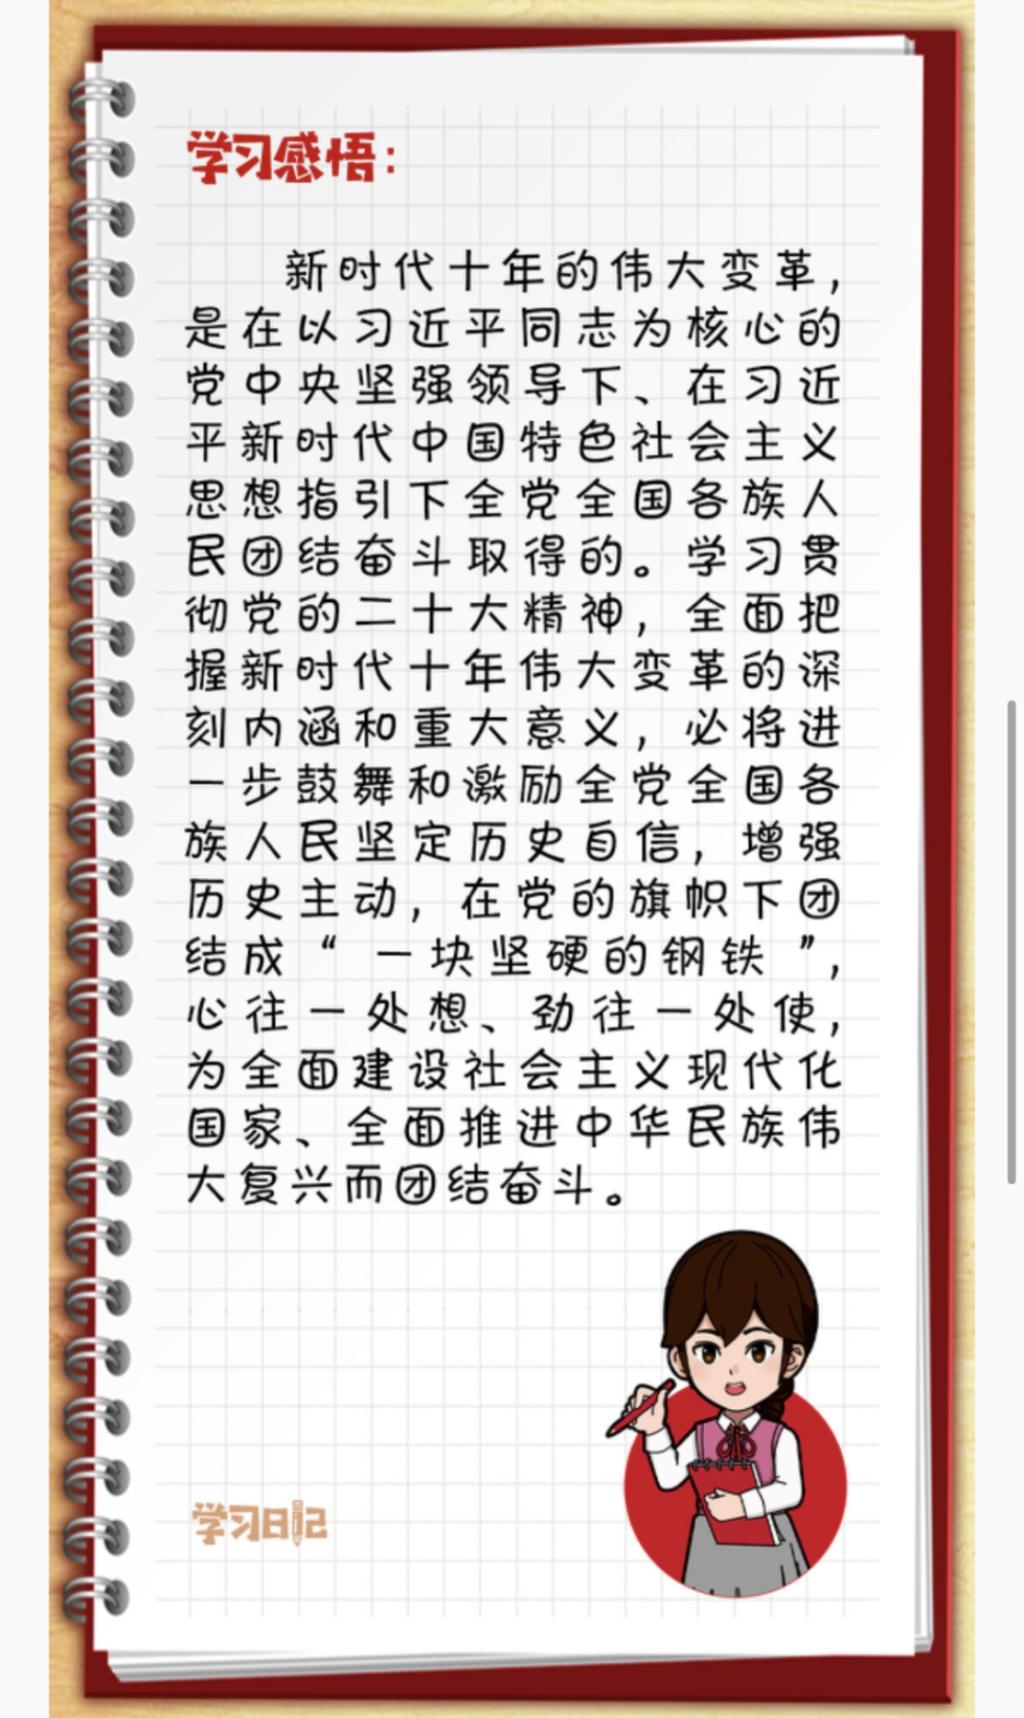 学习感悟：
新时代十年的伟大变革，
是在以习近平同志为核心的
党中央坚强领导下、在习近
平新时代中国特色社会主义
思想指引下全党全国各族人
民团结奋斗取得的。学习贯
彻党的二十大精神，全面把
握新时代十年伟大变革的深
刻内涵和重大意义，必将进
一步鼓舞和激励全党全国各
族人民坚定历史自信，增强
历史主动，在党的旗帜下团
结成“一块坚硬的钢铁”，
心往一处想、劲往一处使，
为全面建设社会主义现代化
国家、全面推进中华民族伟
大复兴而团结奋斗。
学习日记